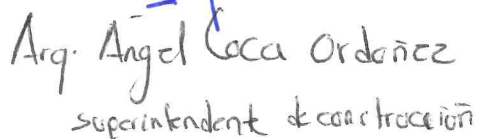 Arq. Angel Coca Ordoñez
superintendent de construcción